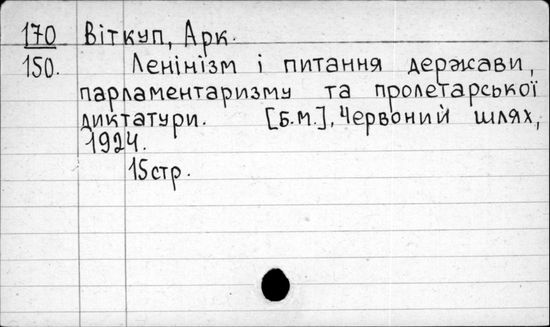 170 Віткуп, Арк.
150. Ленінізм і питання держави,
парламентаризму та пролетарської
диктатури. [Б.м.], Червоний шлях,
1924.
15стр.